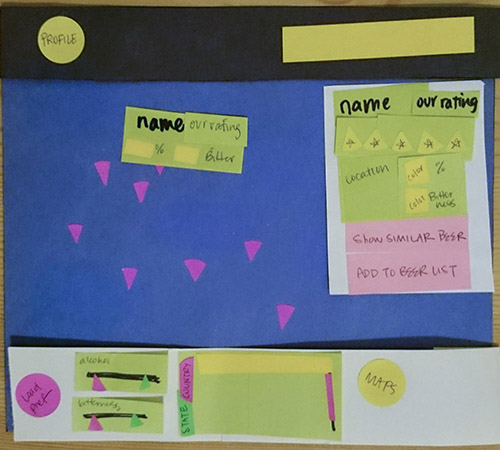 PROFILE
name our rating
% Bitter
name our rating
location color %
color Bitter
ness
Show SIMILAR BEER
ADD TO BEER LIST
alcohol
bitterness
COUNTRY
STATE
Load
Pref
MAPS